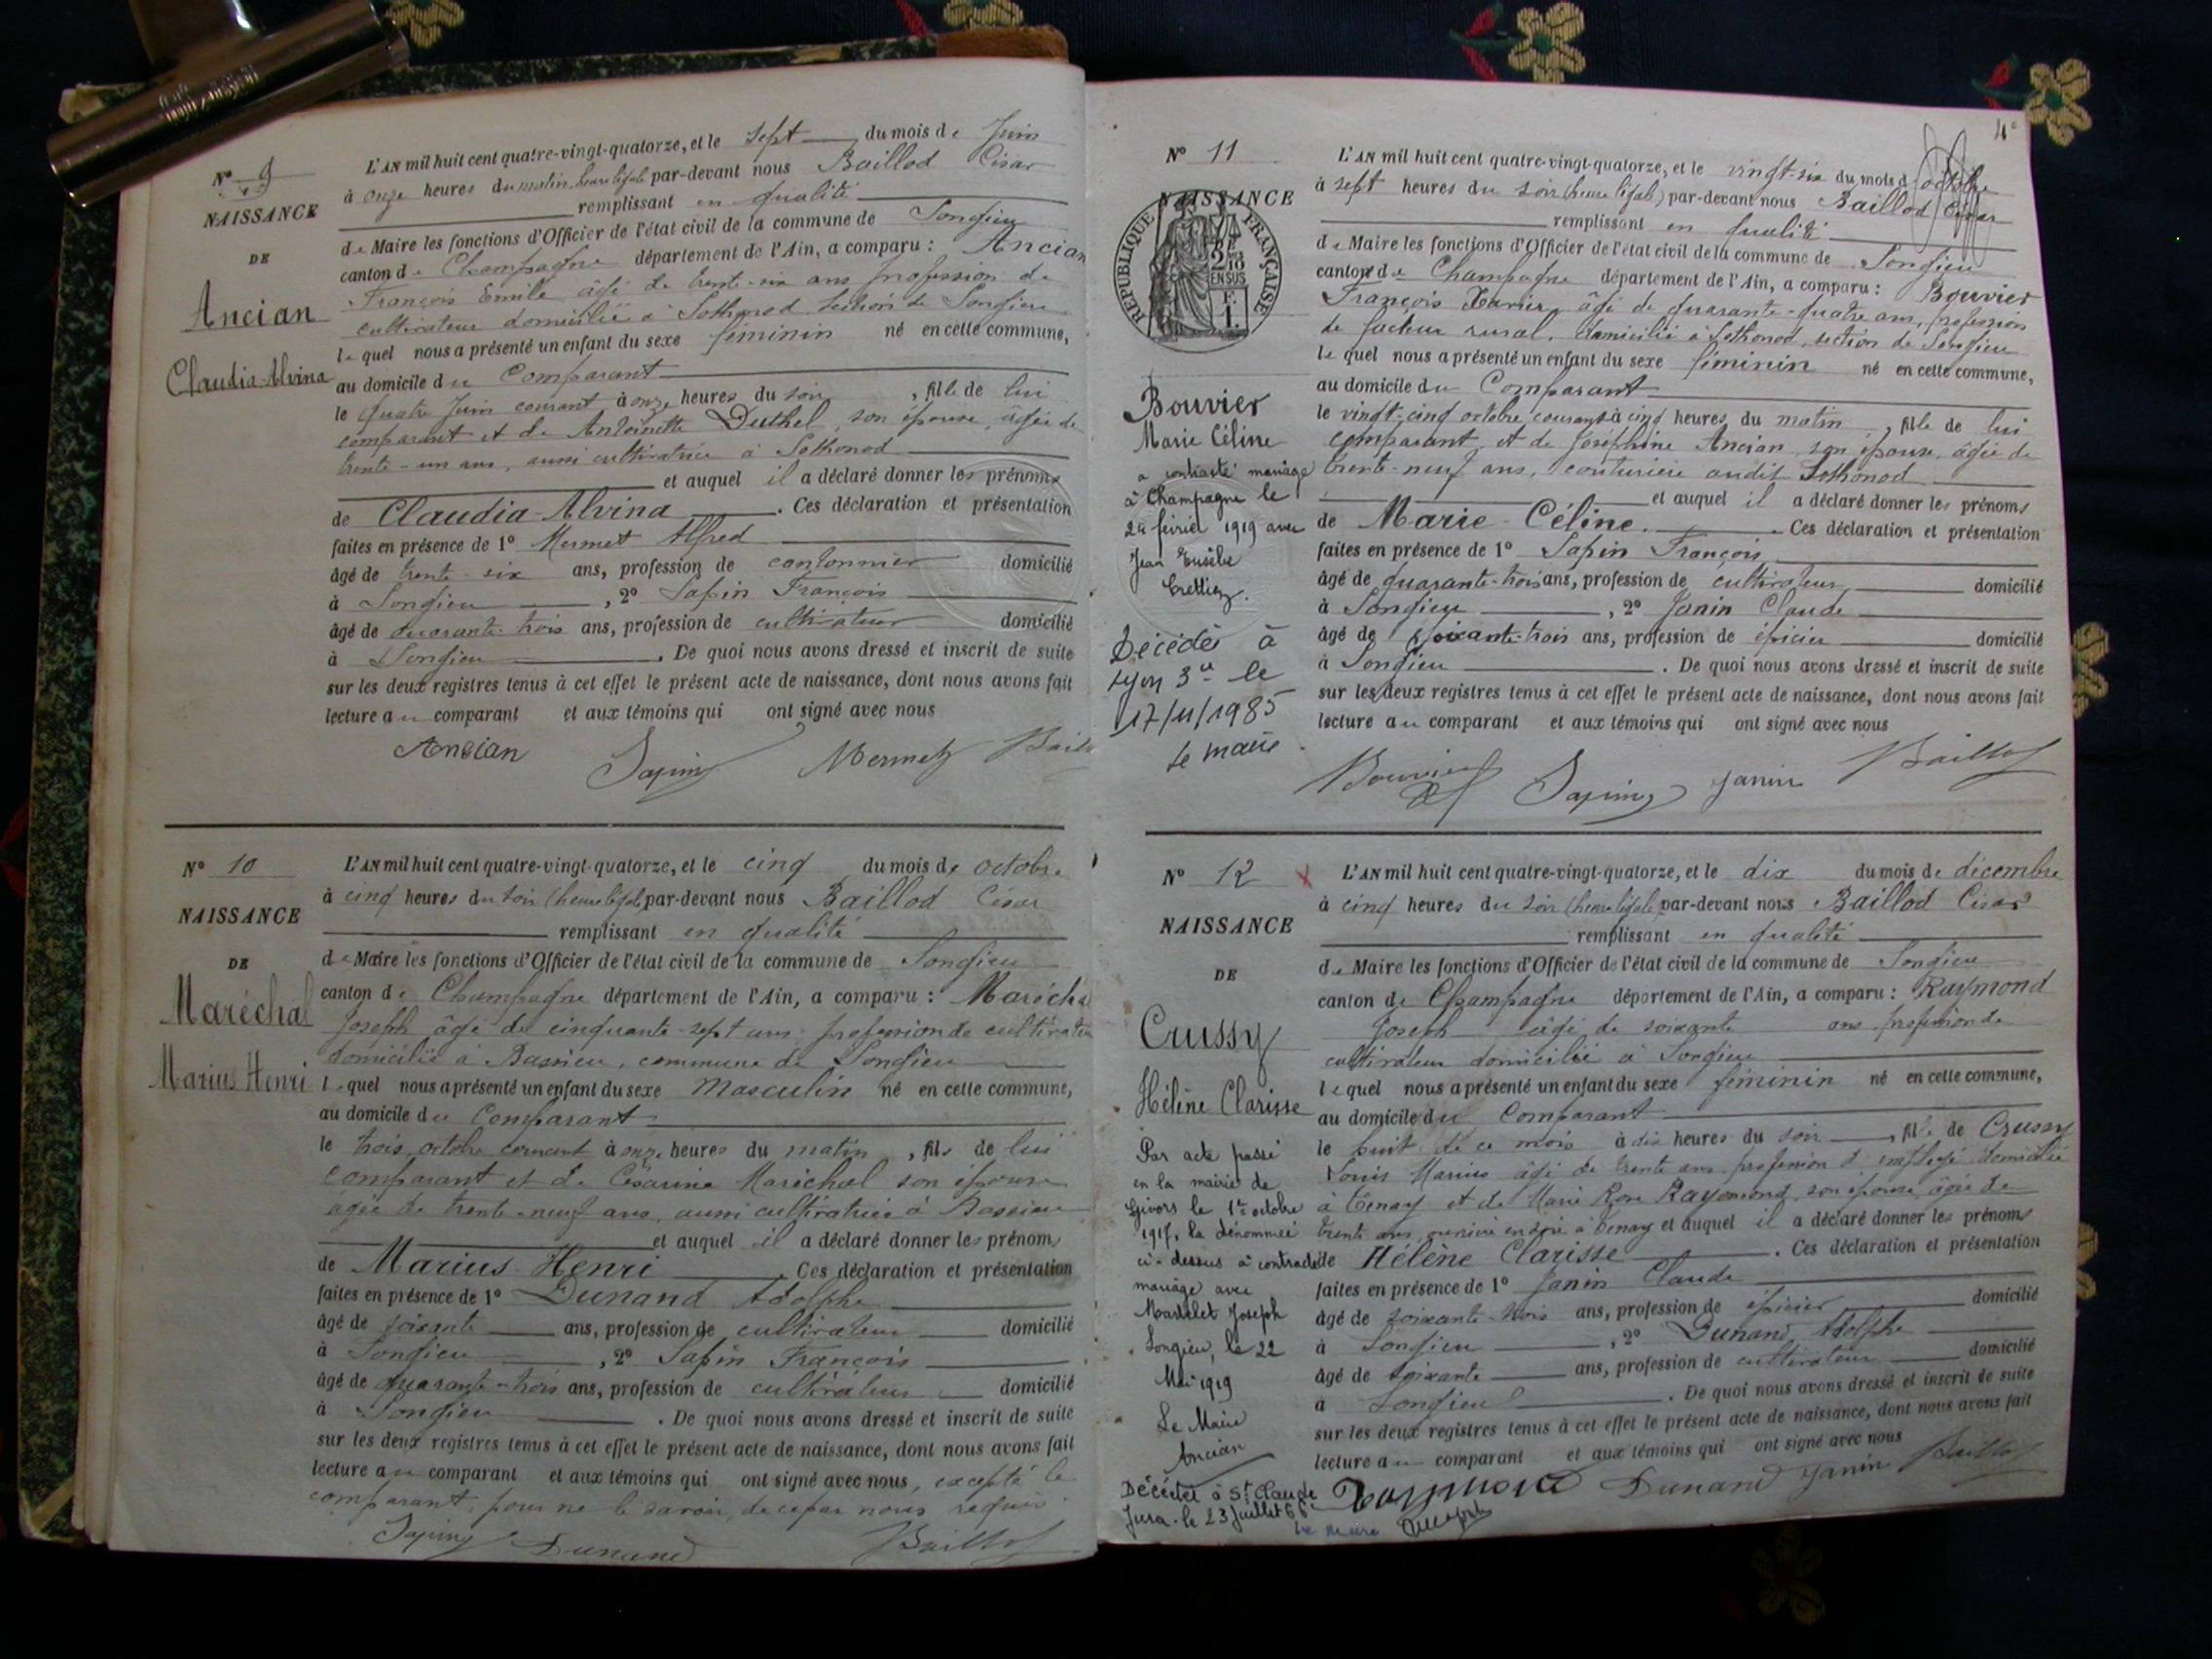 N° 9
NAISSANCE
DE
Ancian
Claudia-Alvina
L'AN mil huit cent quatre-vingt-quatorze, et le sept du mois de Juin
à onze heures du matin, heure légale par-devant nous Baillod César
remplissant en qualité
de Maire les fonctions d'Officier de l'état civil de la commune de Songieu
canton de Champagne département de l'Ain, a comparu : Ancian
François Emile âgé de trente-six ans profession de
cultivateur domicilié à Sothonod section de Songieu
lequel nous a présenté un enfant du sexe féminin né en cette commune,
au domicile du Comparant
le quatre Juin courant à onze heures du soir, fille de lui
comparant et de Antoinette Duthel, son épouse, âgée de
trente-un ans, aussi cultivatrice à Sothonod
et auquel il a déclaré donner les prénoms
de Claudia-Alvina. Ces déclaration et présentation
faites en présence de 1° Mermet Alfred
âgé de trente-six ans, profession de cantonnier domicilié
à Songieu, 2° Sapin François
âgé de quarante-trois ans, profession de cultivateur domicilié
à Songieu. De quoi nous avons dressé et inscrit de suite
sur les deux registres tenus à cet effet le présent acte de naissance, dont nous avons fait
lecture au comparant et aux témoins qui ont signé avec nous
Ancian Sapin Mermet Baillod
N° 10
NAISSANCE
DE
Maréchal
Marius Henri
L'AN mil huit cent quatre-vingt-quatorze, et le cinq du mois de octobre
à cinq heures du soir (heure légale) par-devant nous Baillod César
remplissant en qualité
de Maire les fonctions d'Officier de l'état civil de la commune de Songieu
canton de Champagne département de l'Ain, a comparu : Maréchal
Joseph âgé de cinquante-sept ans profession de cultivateur
domicilié à Bassieu, commune de Songieu
lequel nous a présenté un enfant du sexe Masculin né en cette commune,
au domicile du Comparant
le trois octobre courant à onze heures du matin, fils de lui
comparant et de Césarine Maréchal son épouse
âgée de trente-neuf ans, aussi cultivatrice à Bassieu
et auquel il a déclaré donner les prénoms
de Marius Henri. Ces déclaration et présentation
faites en présence de 1° Dunand Adolphe
âgé de soixante ans, profession de cultivateur domicilié
à Songieu, 2° Sapin François
âgé de quarante-trois ans, profession de cultivateur domicilié
à Songieu. De quoi nous avons dressé et inscrit de suite
sur les deux registres tenus à cet effet le présent acte de naissance, dont nous avons fait
lecture au comparant et aux témoins qui ont signé avec nous, excepté le
comparant, pour ne le savoir, de ce par nous requis.
Sapin Dunand Baillod
4e
N° 11
NAISSANCE
RÉPUBLIQUE FRANÇAISE
2 10
EN SUS
Bouvier
Marie Céline
a contracté mariage
à Champagne le
24 février 1919 avec
Jean Eusèbe
Crettiez.
Décédée à
Lyon 3e le
17/11/1985
Le maire
L'AN mil huit cent quatre-vingt-quatorze, et le vingt-six du mois d'octobre
à sept heures du soir (heure légale) par-devant nous Baillod César
remplissant en qualité
de Maire les fonctions d'Officier de l'état civil de la commune de Songieu
canton de Champagne département de l'Ain, a comparu : Bouvier
François Xavier, âgé de quarante-quatre ans, profession
de facteur rural, domicilié à Sothonod, section de Songieu
lequel nous a présenté un enfant du sexe féminin né en cette commune,
au domicile du Comparant
le vingt-cinq octobre courant à cinq heures du matin, fille de lui
comparant, et de Joséphine Ancian, son épouse, âgée de
trente-neuf ans, couturière audit Sothonod
et auquel il a déclaré donner les prénoms
de Marie-Céline. Ces déclaration et présentation
faites en présence de 1° Sapin François
âgé de quarante-trois ans, profession de cultivateur domicilié
à Songieu, 2° Janin Claude
âgé de soixante-trois ans, profession de épicier domicilié
à Songieu. De quoi nous avons dressé et inscrit de suite
sur les deux registres tenus à cet effet le présent acte de naissance, dont nous avons fait
lecture au comparant et aux témoins qui ont signé avec nous
Bouvier Sapin Janin Baillod
N° 12
NAISSANCE
DE
Crussy
Hélène Clarisse
Par acte passé
en la mairie de
Givors le 1er octobre
1917, la dénommée
ci-dessus a contracté
mariage avec
Joseph
Songieu, le 22
Mai 1919
Le Maire
Ancian
Décédée à St Claude
Jura le 23 Juillet 66
Le Maire
L'AN mil huit cent quatre-vingt-quatorze, et le dix du mois de décembre
à cinq heures du soir (heure légale) par-devant nous Baillod César
remplissant en qualité
de Maire les fonctions d'Officier de l'état civil de la commune de Songieu
canton de Champagne département de l'Ain, a comparu : Raymond
Joseph âgé de soixante ans profession de
cultivateur domicilié à Songieu
lequel nous a présenté un enfant du sexe féminin né en cette commune,
au domicile du Comparant
le huit de ce mois à dix heures du soir, fille de Crussy
Louis Marius âgé de trente ans profession d'employé domicilié
à Tenay et de Marie Rose Raymond, son épouse âgée de
trente ans, ouvrière en soie à Tenay et auquel il a déclaré donner les prénoms
de Hélène Clarisse. Ces déclaration et présentation
faites en présence de 1° Janin Claude
âgé de soixante-trois ans, profession de épicier domicilié
à Songieu, 2° Dunand Adolphe
âgé de soixante ans, profession de cultivateur domicilié
à Songieu. De quoi nous avons dressé et inscrit de suite
sur les deux registres tenus à cet effet le présent acte de naissance, dont nous avons fait
lecture au comparant et aux témoins qui ont signé avec nous
Raymond Dunand Janin Baillod